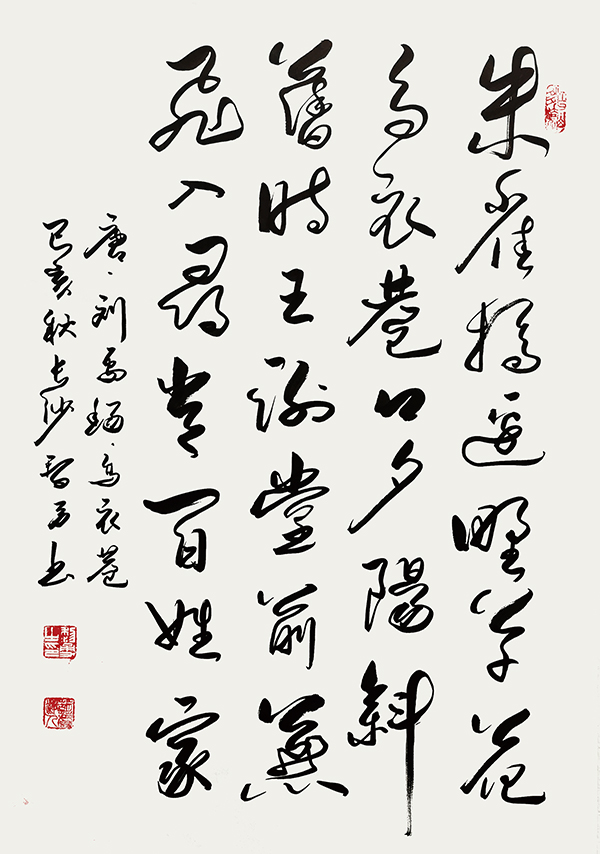 朱雀橋邊野草花
烏衣巷口夕陽斜
舊時王謝堂前燕
飛入尋常百姓家
唐·刘禹錫·烏衣巷
己亥秋长沙书